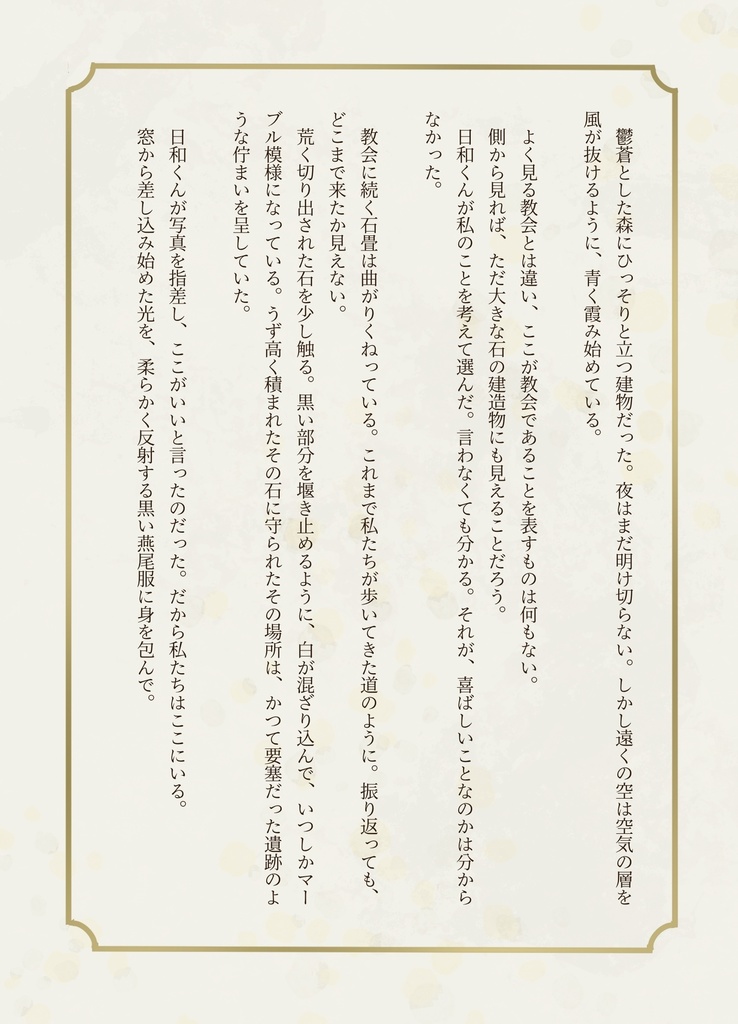 鬱蒼とした森にひっそりと立つ建物だった。夜はまだ明け切らない。しかし遠くの空は空気の層を
風が抜けるように、青く霞み始めている。
よく見る教会とは違い、ここが教会であることを表すものは何もない。
側から見れば、ただ大きな石の建造物にも見えることだろう。
日和くんが私のことを考えて選んだ。言わなくても分かる。それが、喜ばしいことなのかは分から
なかった。
教会に続く石畳は曲がりくねっている。これまで私たちが歩いてきた道のように。振り返っても、
どこまで来たか見えない。
荒く切り出された石を少し触る。黒い部分を堰き止めるように、白が混ざり込んで、いつしかマー
ブル模様になっている。うず高く積まれたその石に守られたその場所は、かつて要塞だった遺跡のよ
うな佇まいを呈していた。
日和くんが写真を指差し、ここがいいと言ったのだった。だから私たちはここにいる。
窓から差し込み始めた光を、柔らかく反射する黒い燕尾服に身を包んで。